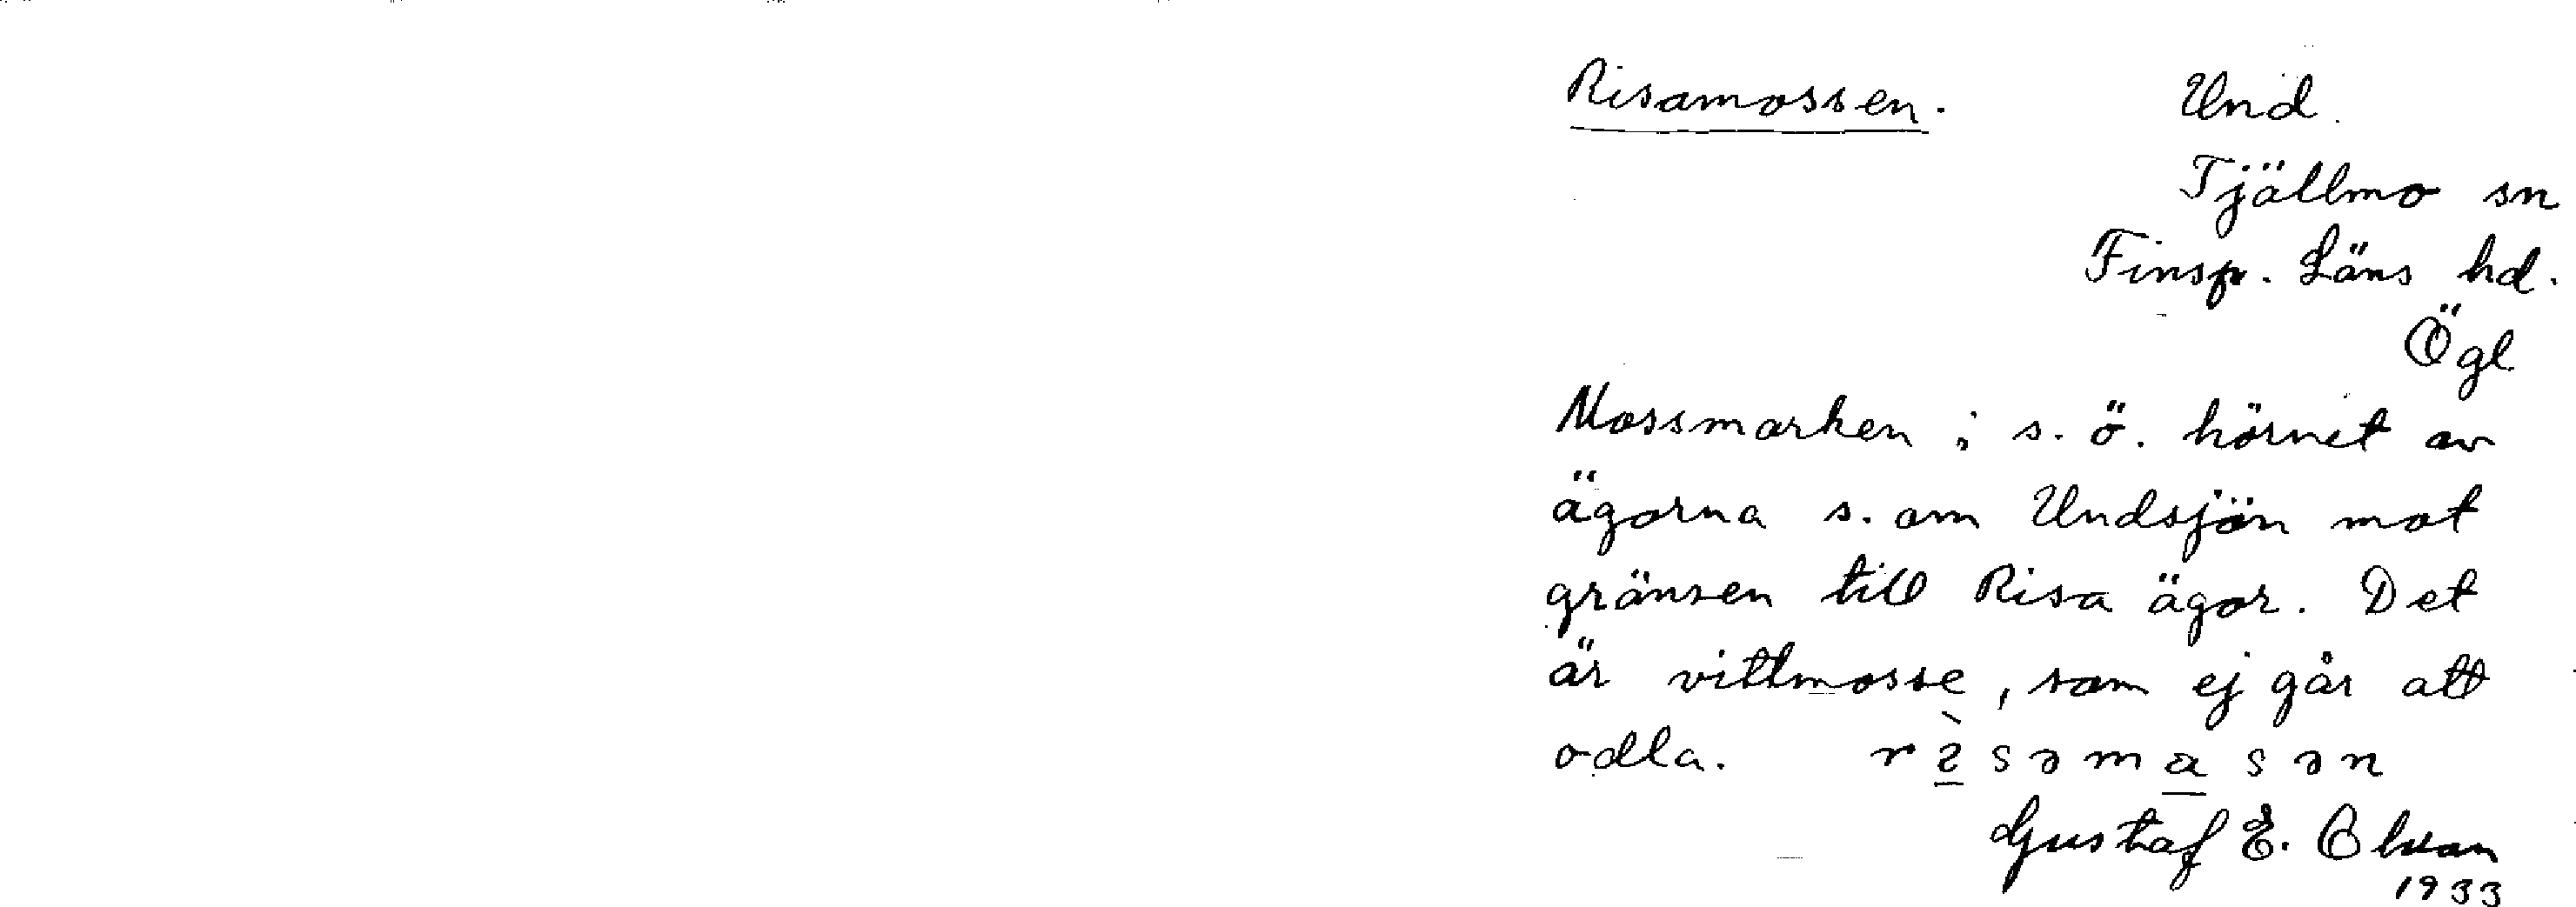 Risamossen. Und.
Tjällmo sn
Finsp. Läns hd.
Ögl
Mossmarken i s. ö. hörnet av
ägorna s. om Undsjön mot
gränsen till Risa ägor. Det
är vittmosse, som ej går att
odla.
Gustaf E. Olsson
1933